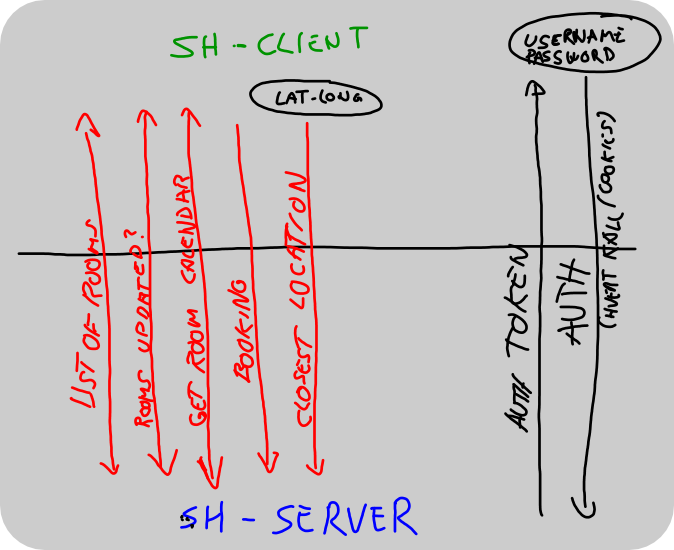 SH-CLIENT
USERNAME
PASSWORD
LAT-LONG
LIST OF ROOMS
ROOMS UPDATED?
GET ROOM CALENDAR
BOOKING
CLOSEST LOCATION
AUTH TOKEN
AUTH
COOKIES)
SH-SERVER